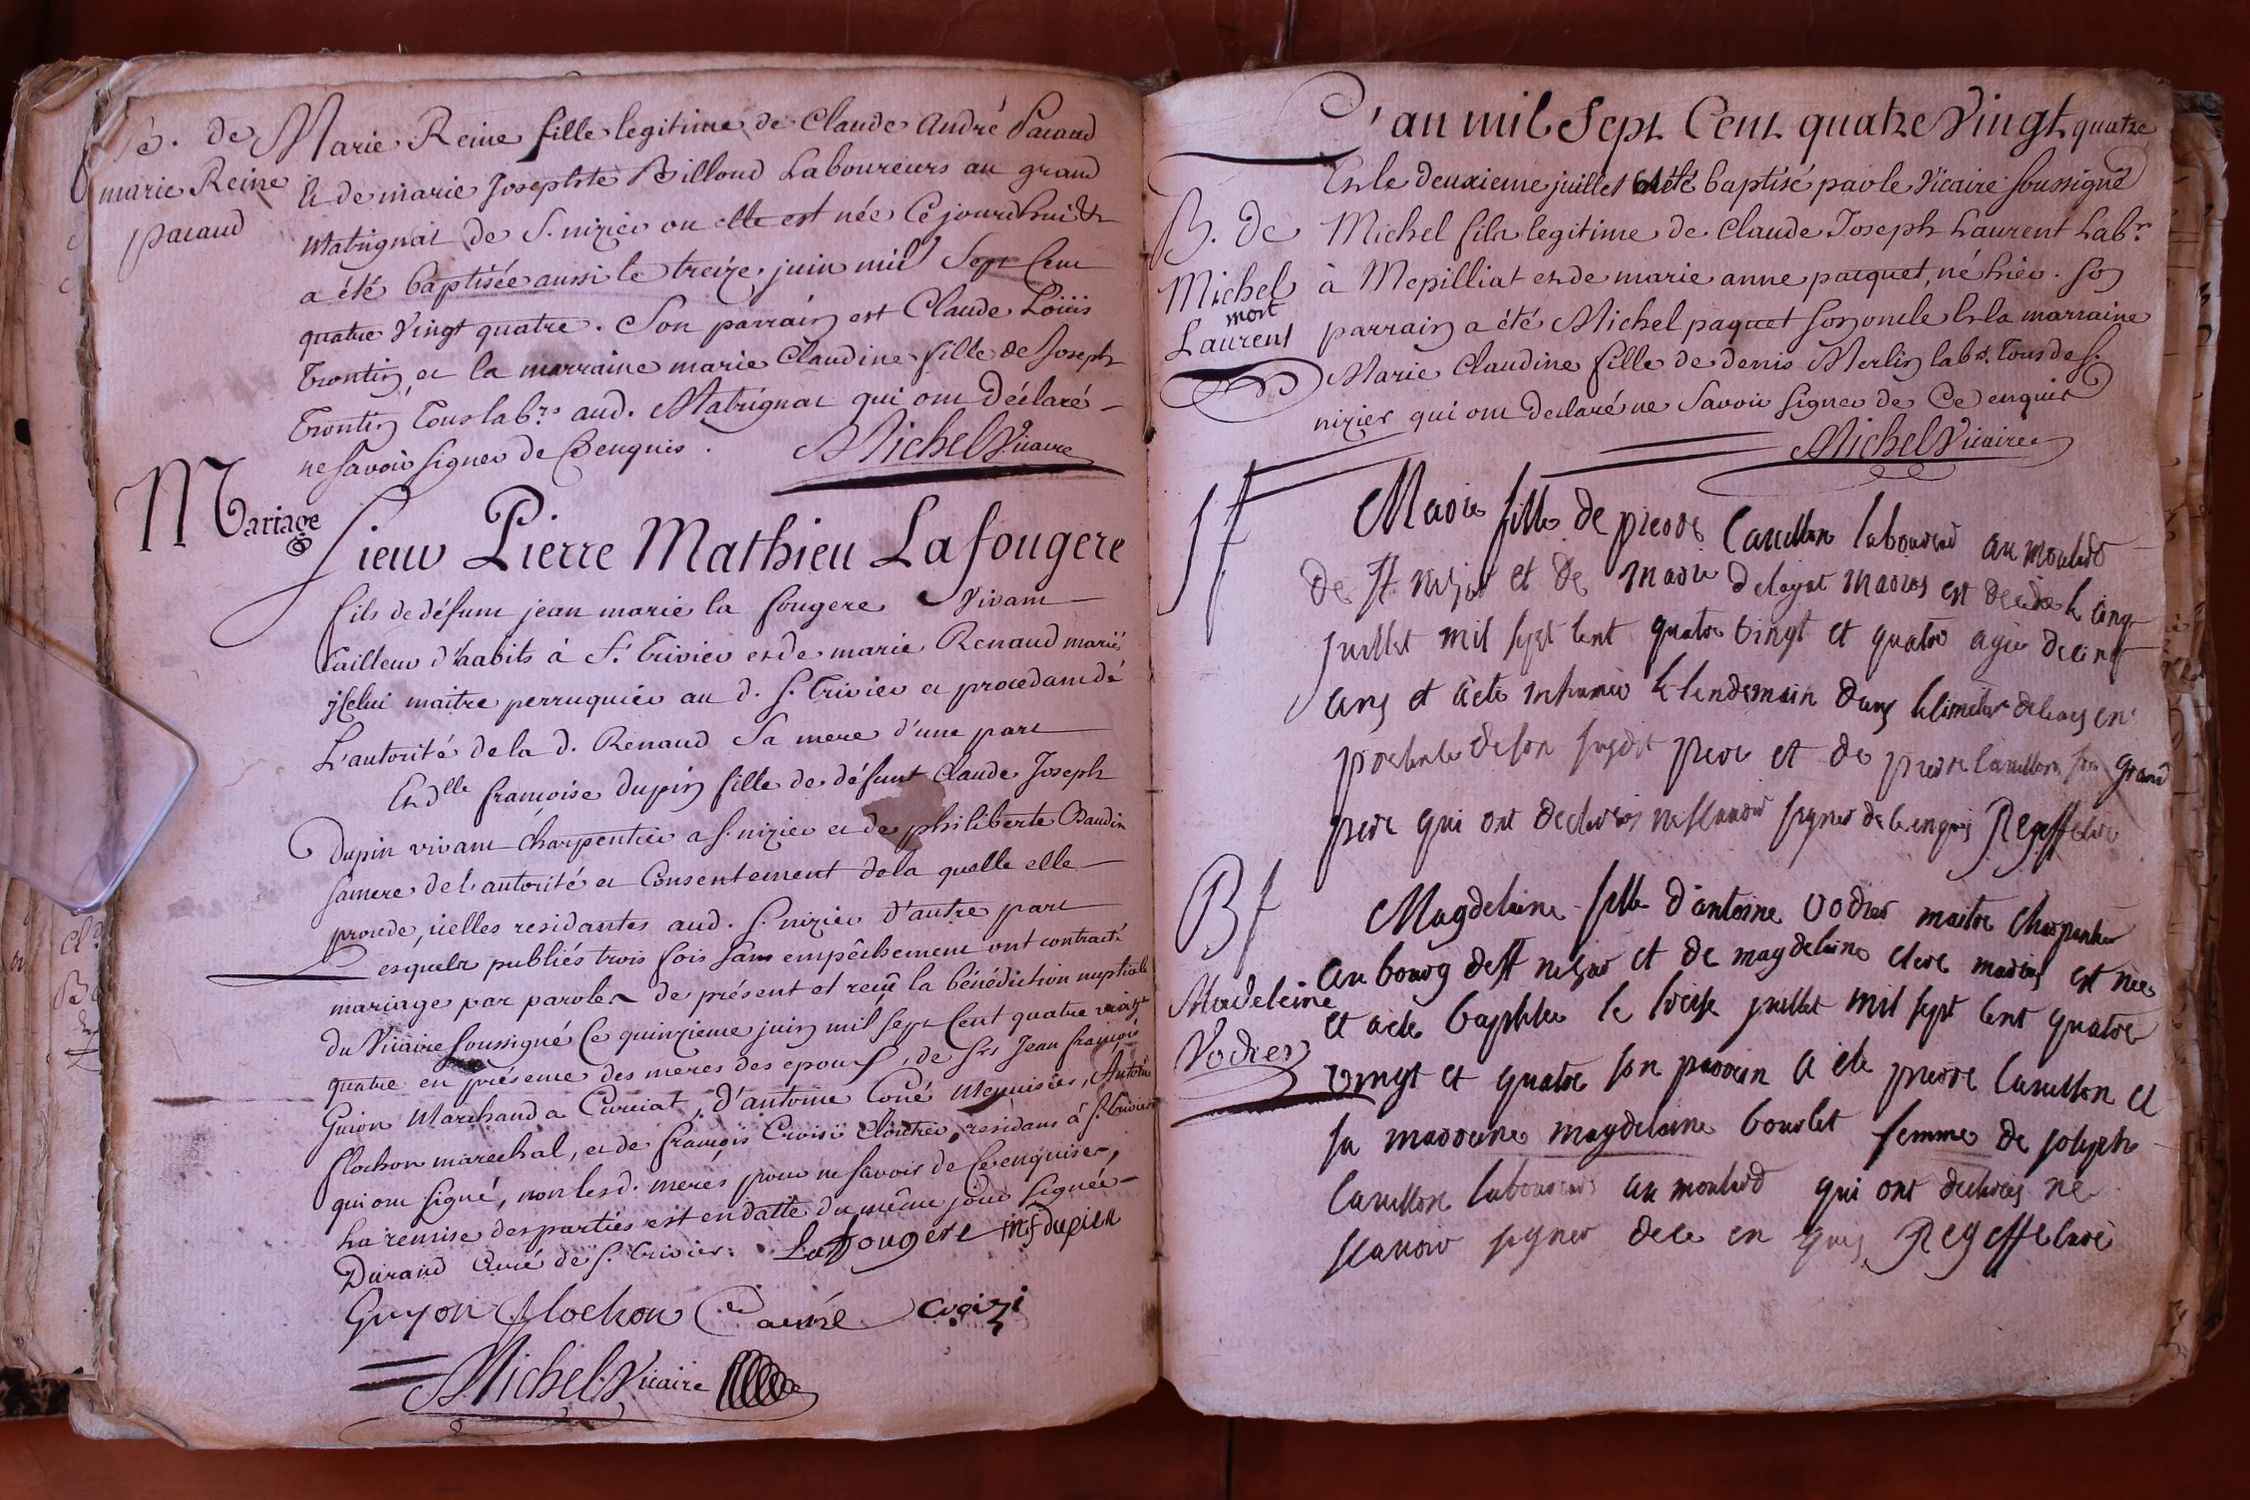 B. de
marie Reine
pacaud
Marie Reine fille legitime de Claude André Pacaud
& de marie Josephte Billoud Laboureurs au grand
Matrignat de S. nizier ou elle est née Ce jourdhui &
a été baptisée aussi le treize juin mil Sept Cent
quatre Vingt quatre. Son parrain est Claude Loüis
Trontin et la marraine marie Claudine fille de Joseph
Trontin Tous labrs aud. Matrignat qui ont déclaré
ne savoir signer de Ce enquis.
Michel Vicaire
Mariage
Sieur Pierre Mathieu Lafougere
fils de défunt jean marie la fougere Vivant
tailleur d'habits à St Trivier et de marie Renaud mariés
icelui maitre perruquier au d. S. Trivier et procedant de
L'autorité de la d. Renaud Sa mere d'une part
Et dlle françoise dupin fille de défunt Claude Joseph
Dupin vivant Charpentier a S. nizier et de philiberte Baudin
sa mere de l'autorité et Consentement de la quelle elle
procede, icelles residantes aud. S. nizier d'autre part
Lesquels publiés trois fois sans empêchement ont contracté
mariage par paroles de présent et reçu la bénédiction nuptiale
du Vicaire soussigné Ce quinzieme juin mil sept Cent quatre vingt
quatre en présence des meres des epoux, de Srs Jean françois
Guion Marchand a Curciat, d'antoine Coné Menuisier, Antoine
flochon marechal, et de françois Croisi Cloutier, residans à S. Trivier
qui ont signé, non lesd. meres pour ne savoir de Ce enquises,
La remise des parties est en datte du même jour signée
Durand Curé de S. Trivier. Laffougere mf dupien
Guyon flochon Cauné croizi
Michel Vicaire
L'an mil Sept Cent quatre Vingt quatre
Et le deuxieme juillet a été baptisé par le Vicaire soussigné
B. de
Michel
mort
Laurent
Michel fils legitime de Claude Joseph Laurent Labr.
à Mepilliat et de marie anne pacquet, né hier. son
parrain a été Michel paquet son oncle & la marraine
Marie Claudine fille de denis Merlin labr. Tous de S.
nizier qui ont declaré ne Savoir signer de Ce enquis
Michel Vicaire
Sf
Marie fille de pierre Cavillon laboureur au moulard
de St nizier et de marie delayat mariés est decedée le cinq
juillet mil sept cent quatre vingt et quatre agée de cinq
ans et a été inhumée le lendemain dans le cimetiere de ceans en
presence de son susdit pere et de pierre Cavillon son grand
pere qui ont declarés ne scavoir signer de ce enquis Regeffe curé
Bf
Madeleine
Vodier
Magdelaine fille d'antoine Vodier maitre charpentier
au bourg de St nizier et de magdelaine clerc mariés est née
et a été baptisée le treise juillet mil sept cent quatre
vingt et quatre son parrain a été pierre Cavillon et
sa marraine magdelaine bourlet femme de joseph
Cavillon laboureur au moulard qui ont declarés ne
scavoir signer de ce en quis Regeffe curé